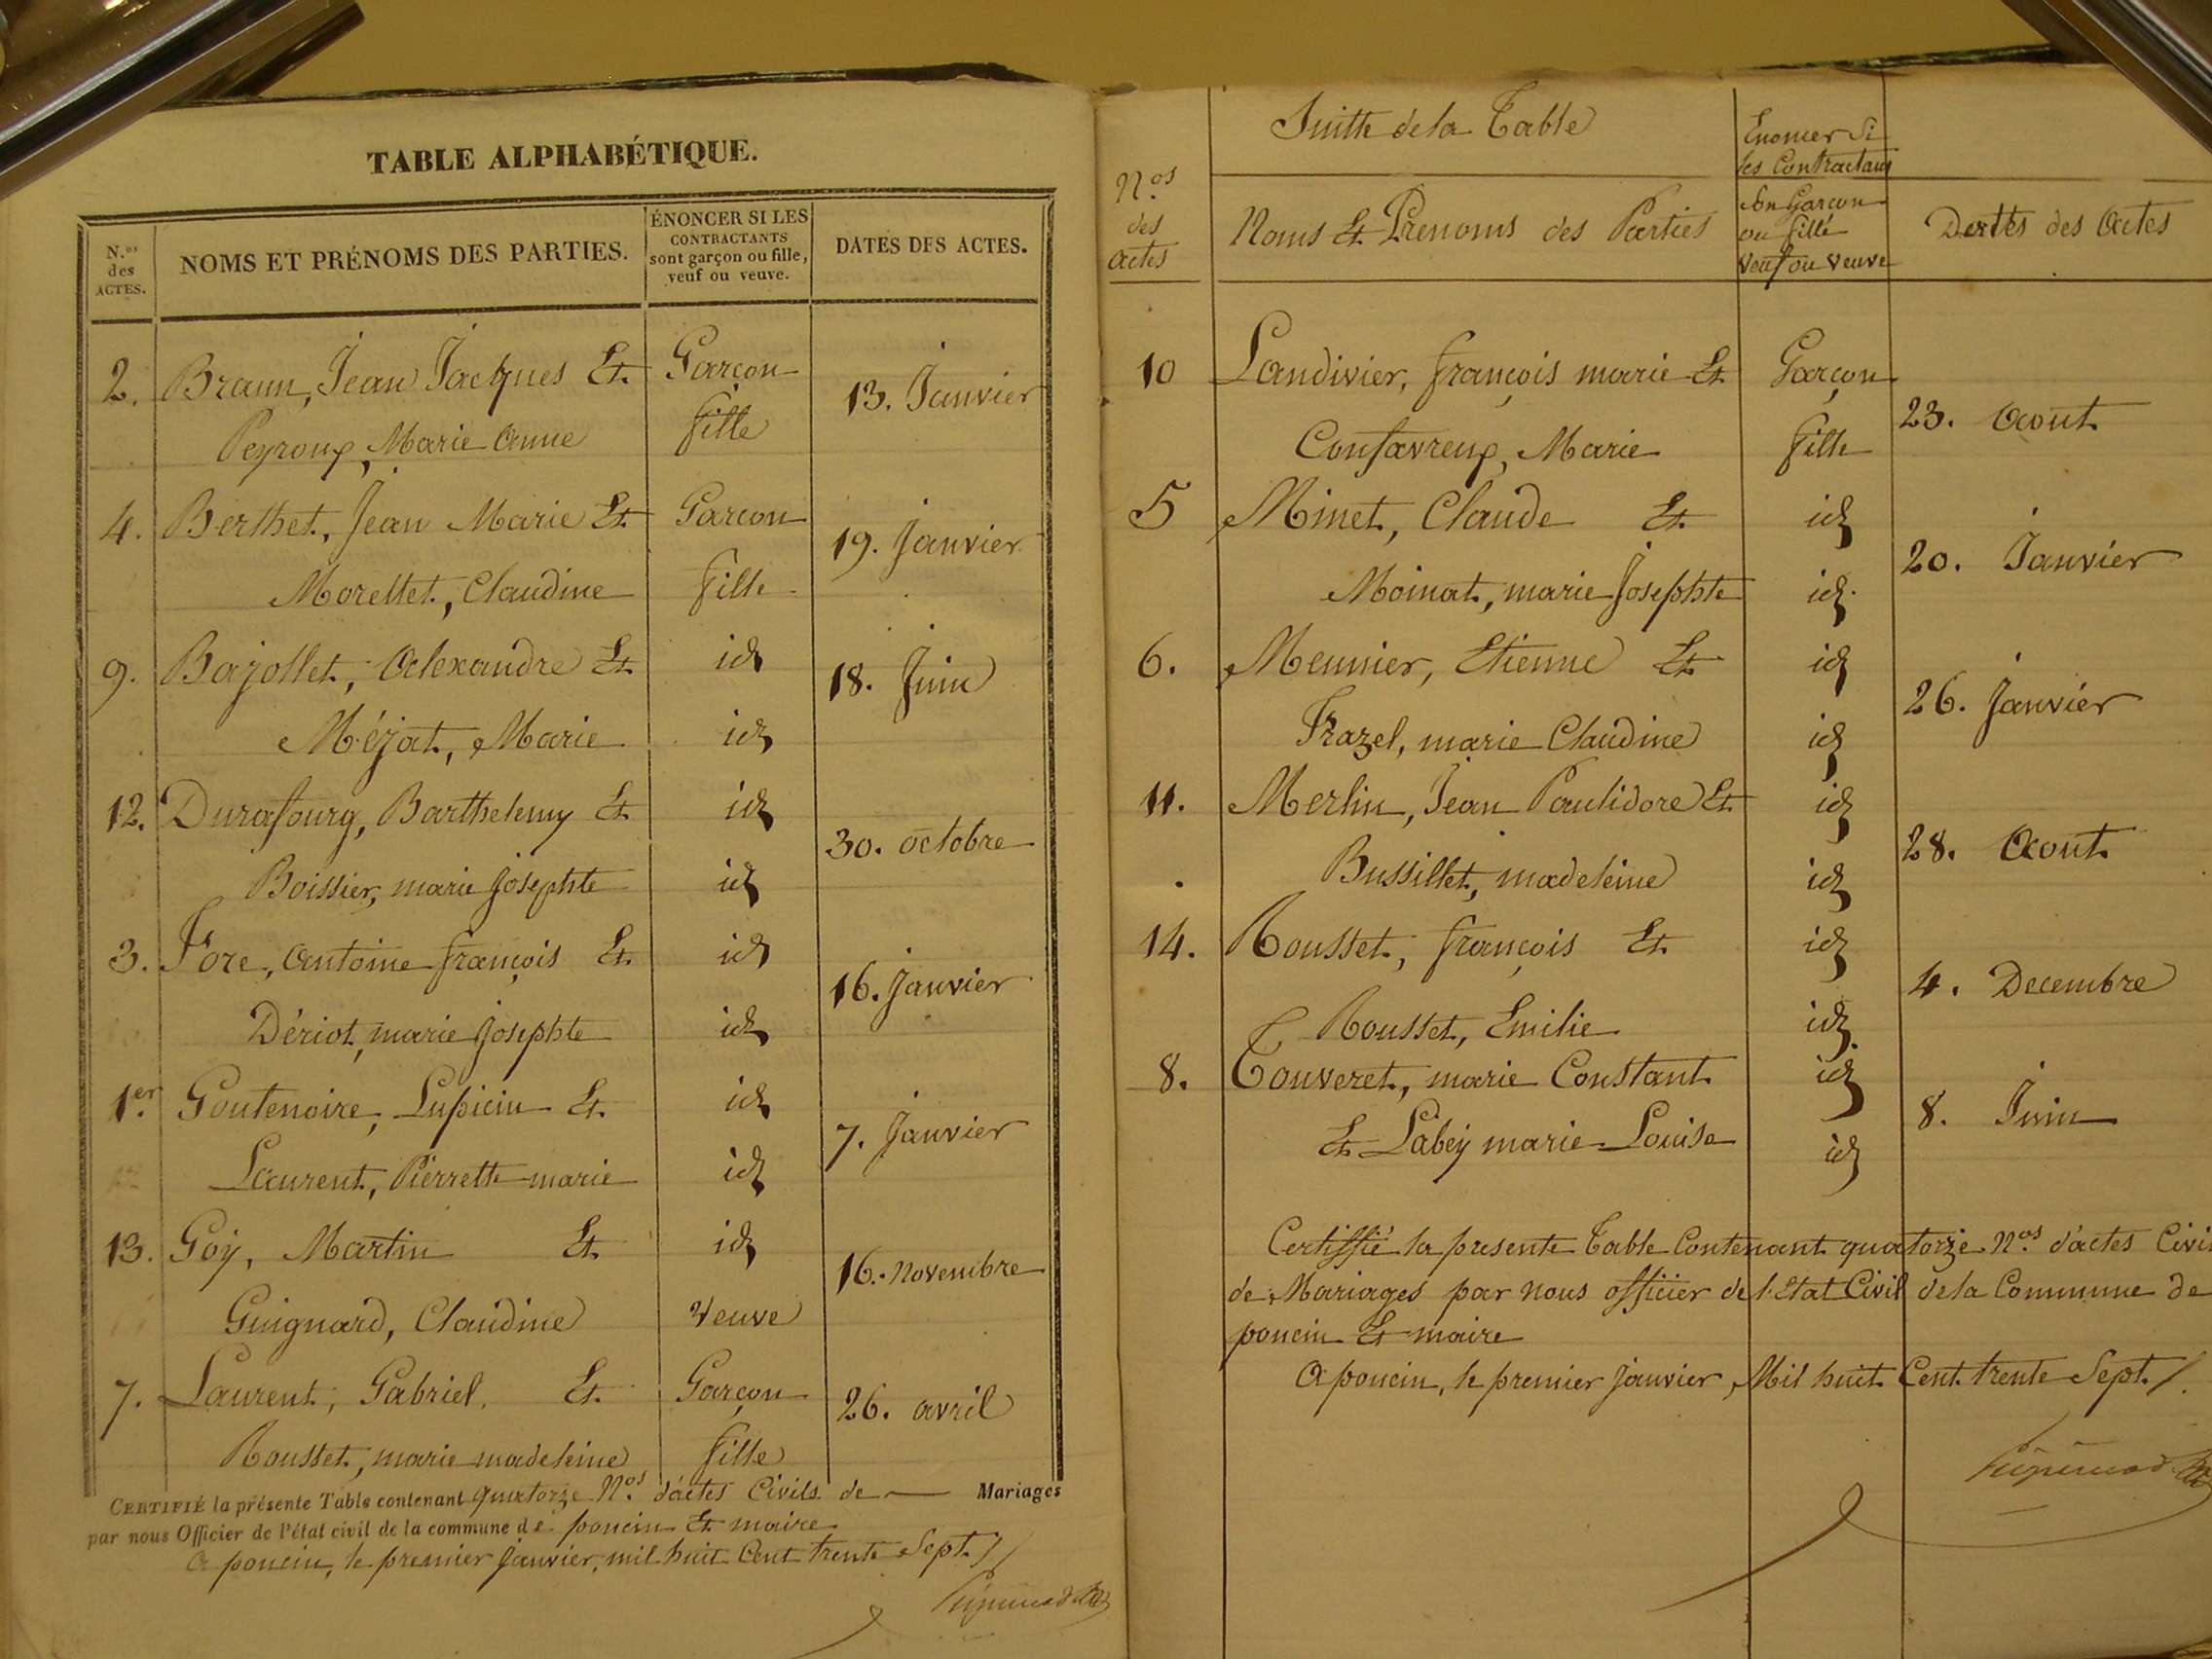 TABLE ALPHABÉTIQUE.
N.os des ACTES.
NOMS ET PRÉNOMS DES PARTIES.
ÉNONCER SI LES
CONTRACTANTS
sont garçon ou fille,
veuf ou veuve.
DATES DES ACTES.
2. Braun, Jean Jacques Et Garçon
13. Janvier
Peyroux, Marie Anne fille
4. Berthet, Jean Marie Et Garcon
19. Janvier
Morellet, Claudine fille
9. Bajollet, Alexandre Et id
18. Juin
Méjat, Marie id
12. Durafourg, Barthelemy Et id
30. octobre
Boissier, marie Josephte id
3. Fore, Antoine françois Et id
16. Janvier
Dériot, marie Josephte id
1er Goutenoire, Lupicin Et id
7. Janvier
Laurent, Pierrette marie id
13. Goÿ, Martin Et id
16. Novembre
Guignard, Claudine Veuve
7. Laurent, Gabriel. Et Garçon
26. avril
Rousset, marie madeleine fille
CERTIFIÉ la présente Table contenant quatorze Nos d'actes Civils de — Mariages
par nous Officier de l'état civil de la commune de poncin Et maire
A poncin, le premier Janvier, mil huit Cent trente Sept
Suitte de la Table
Nos
des
actes
Noms Et Prenoms des Parties
Enoncer Si
les Contractans
son Garcon
ou fille
veuf ou veuve
Dattes des Actes
10 Landivier, françois marie Et Garçon
23. Aout
Confavreux, Marie fille
5 Minet, Claude Et id
20. Janvier
Moinat, marie Josephte id
6. Meunier, Etienne Et id
26. Janvier
Frazel, marie Claudine id
11. Merlin, Jean Paulidore Et id
28. Aout
Bussillet, madeleine id
14. Rousset, françois Et id
4. Decembre
Rousset, Emilie id
8. Touveret, marie Constant id
8. Juin
Et Labeÿ marie Louise id
Certiffié la presente Table Contenant quatorze Nos d'actes Civi
de Mariages par nous officier de l'Etat Civil de la Commune de
poncin Et maire
A poncin, le premier Janvier, Mil huit Cent trente Sept